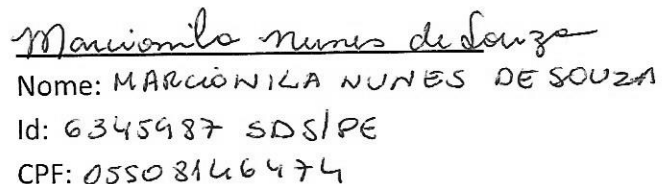 Marcionila Nunes de Souza
Nome: MARCIONILA NUNES DE SOUZA
Id: 6345987 SDS/PE
CPF: 05508146474